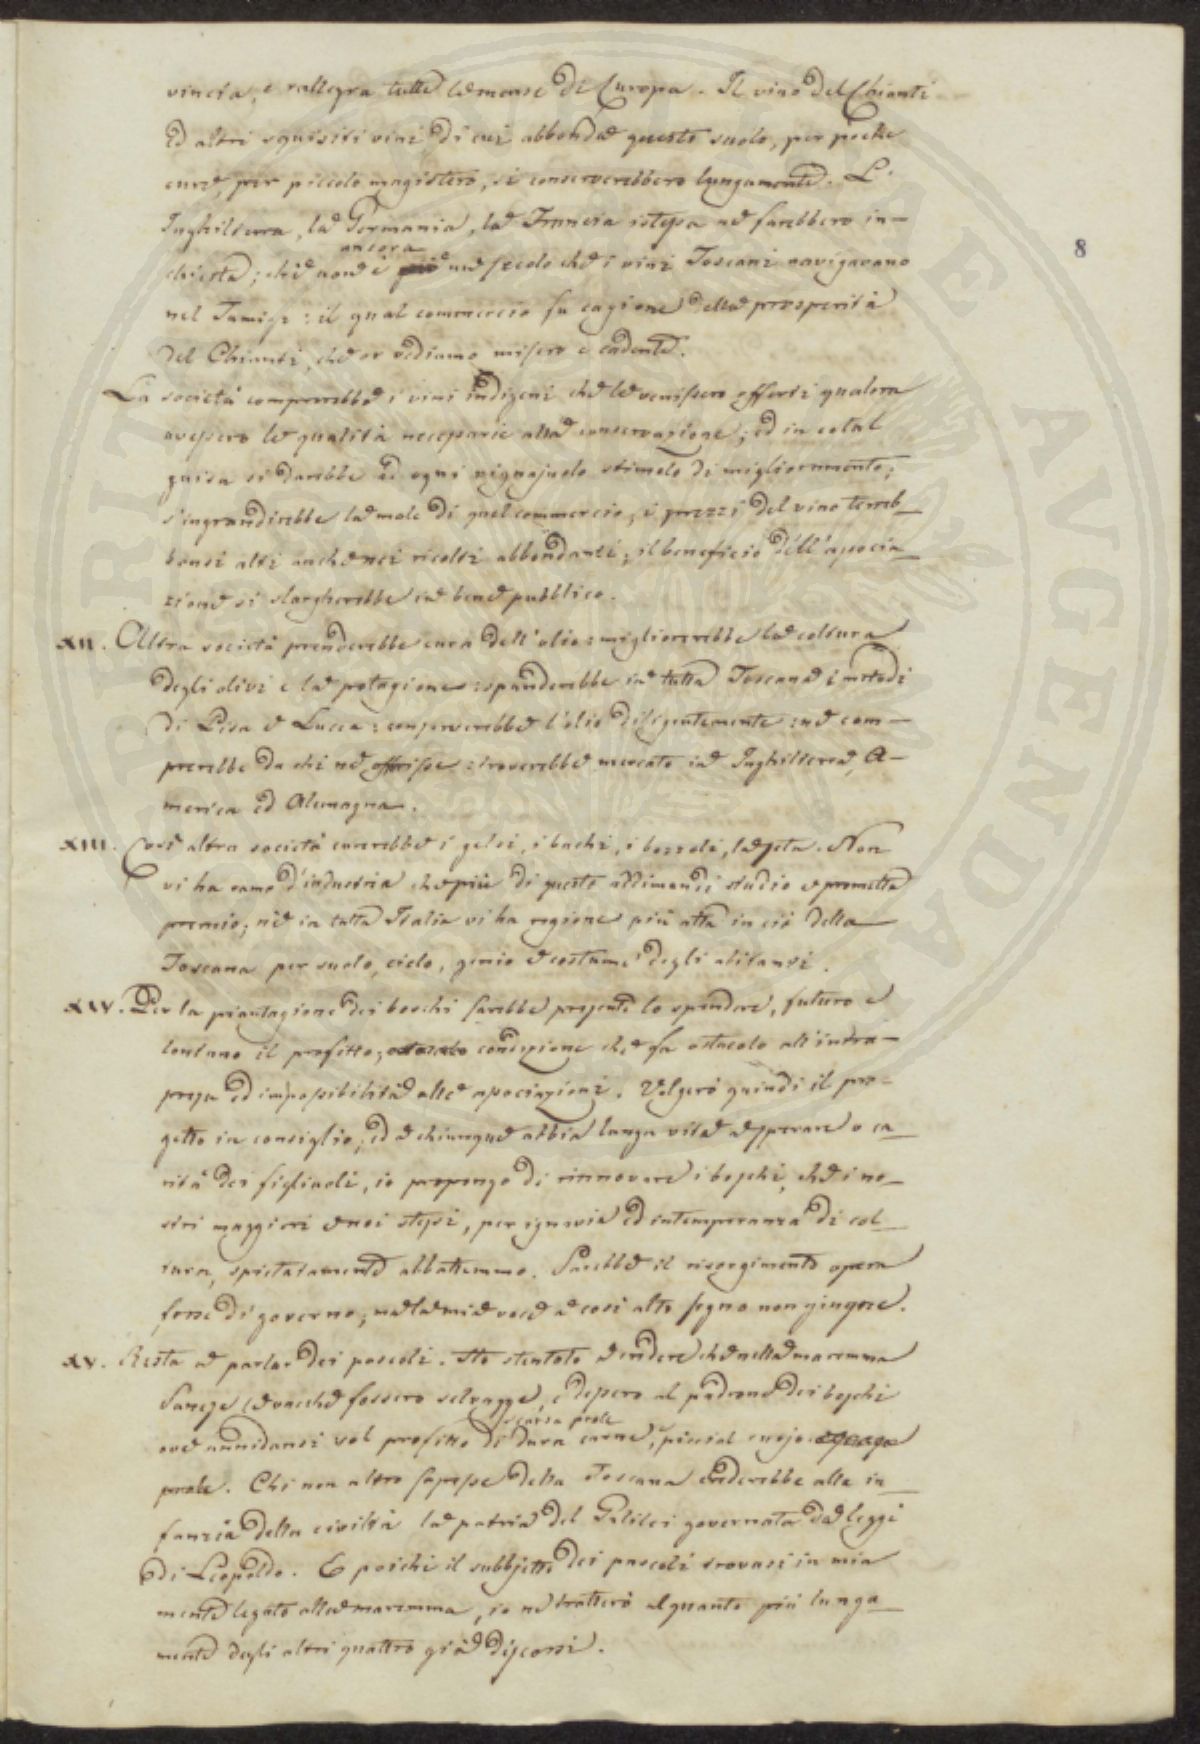 vincia, e rallegra tutte le mense di Europa. Il vino del Chianti
ed altri squisiti vini di cui abbonda questo suolo, per poche
cure, per piccolo magistero, si conserverebbero lungamente. L'
Inghilterra, la Germania, la Francia istessa ne farebbero in-
ancora
chiesta; chè non è più un secolo che i vini Toscani navigavano
8
nel Tamigi: il qual commercio fu cagione della prosperità
del Chianti, che or vediamo misero e cadente.
La società comprerebbe i vini indigeni che le venissero offerti qualora
avessero le qualità necessarie alla conservazione; ed in cotal
guisa si darebbe ad ogni vignajuolo stimolo di miglioramento;
s'ingrandirebbe la mole di quel commercio, i prezzi del vino terreb-
bonsi alti anche nei ricolti abbondanti; il beneficio dell'associa-
zione si slargherebbe in bene pubblico.
XII. Altra società prenderebbe cura dell'olio: migliorerebbe la coltura
degli olivi e la potagione: spanderebbe in tutta Toscana i metodi
di Pisa e Lucca: conserverebbe l'olio diligentemente: ne com-
prerebbe da chi ne offrisse: troverebbe mercato in Inghilterra, A-
merica ed Alemagna.
XIII. Così altra società curerebbe i gelsi, i bachi, i bozzoli, la seta. Non
vi ha ramo d'industria che più di questo addimandi studio e prometta
premio; nè in tutta Italia vi ha regione più atta in ciò della
Toscana per suolo, cielo, genio e costume degli abitanti.
XIV. Per la piantagione dei boschi sarebbe presente lo spendere, futuro e
lontano il profitto; condizione che fa ostacolo all'intra-
presa ed impossibilità alle associazioni. Volgerò quindi il pro-
getto in consiglio; ed a chiunque abbia lunga vita a sperare o ca-
rità dei figliuoli, io propongo di rinnovare i boschi, che i no-
stri maggiori e noi stessi, per ignavia ed intemperanza di col-
tura, spietatamente abbattemmo. Sarebbe il risorgimento opera
forse di governo; ma la mia voce a così alto segno non giugne.
XV. Resta a parlar dei pascoli. Ho stentato a credere che nella maremma
sanese le vacche fossero selvagge, e dessero al padrone dei boschi
scarsa prole
ove annidansi sol profitto di dura carne, picciol cuojo
prole. Chi non altro sapesse della Toscana crederebbe alla in-
fanzia della civiltà la patria del Galilei governata da leggi
di Leopoldo. E poichè il subbjetto dei pascoli trovasi in mia
mente legato alla maremma, io ne tratterò alquanto più lunga-
mente degli altri quattro già discorsi.